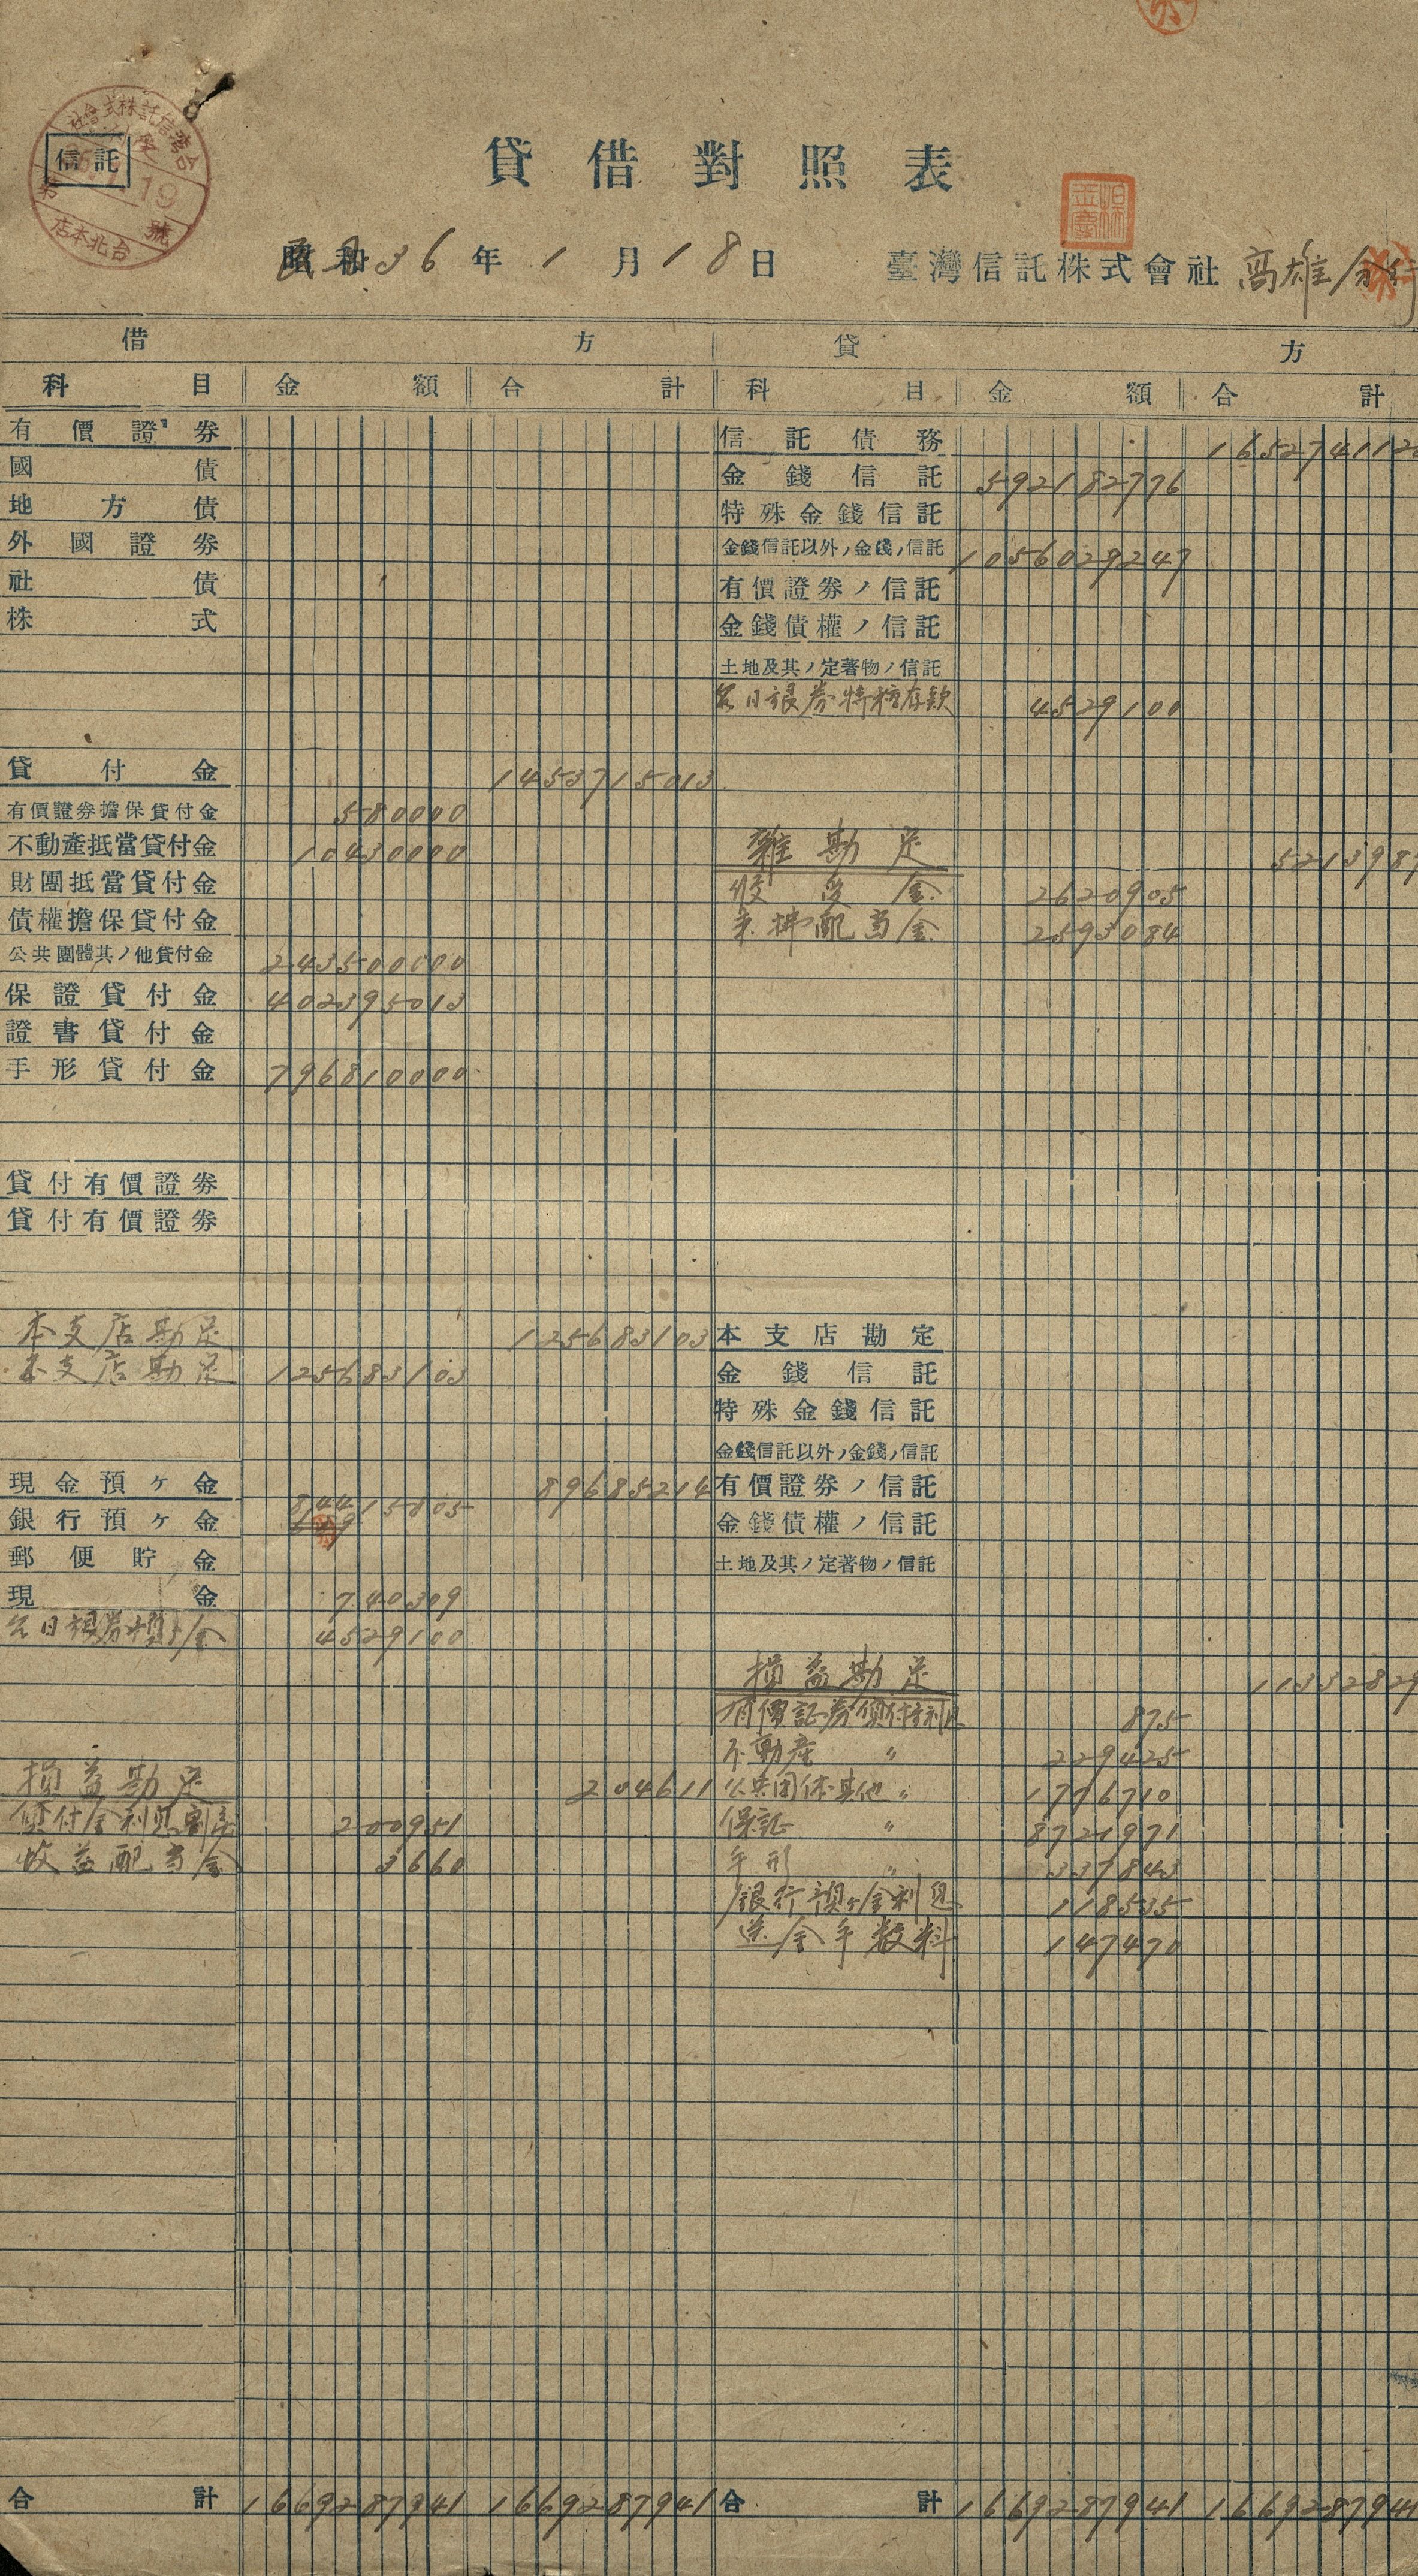 信託
台灣信託株式會社
19
台北本店
貸借對照表
昭和36年1月18日 臺灣信託株式會社 高雄分行
借方 貸方
科目 金額 合計 科目 金額 合計
有價證券 信託債務 1652741120
國債 金錢信託 592182776
地方債 特殊金錢信託
外國證券 金錢信託以外ノ金錢ノ信託 1056029247
社債 有價證券ノ信託
株式 金錢債權ノ信託
土地及其ノ定著物ノ信託
日銀券特種存款 4529100
貸付金 1453715013
有價證券擔保貸付金 580000
不動產抵當貸付金 10430000 雜勘定 5213989
財團抵當貸付金 假受金 2620905
債權擔保貸付金 未拂配当金 2593084
公共團體其ノ他貸付金 243500000
保證貸付金 402395013
證書貸付金
手形貸付金 796810000
貸付有價證券
貸付有價證券
本支店勘定 125683103 本支店勘定
本支店勘定 125683103 金錢信託
特殊金錢信託
金錢信託以外ノ金錢ノ信託
現金預ケ金 89685214 有價證券ノ信託
銀行預ケ金 84415805 金錢債權ノ信託
郵便貯金 土地及其ノ定著物ノ信託
現金 740309
日銀券預ケ金 4529100
損益勘定 11332829
有價証券貸付利息 875
不動産 〃 229425
損益勘定 204611 公共団体其他 〃 1776710
貸付金利息割戻 200951 保証 〃 8721971
收益配当金 3660 手形 〃 337843
銀行預ケ金利息 118535
送金手数料 147470
合計 1669287941 1669287941 合計 1669287941 1669287941